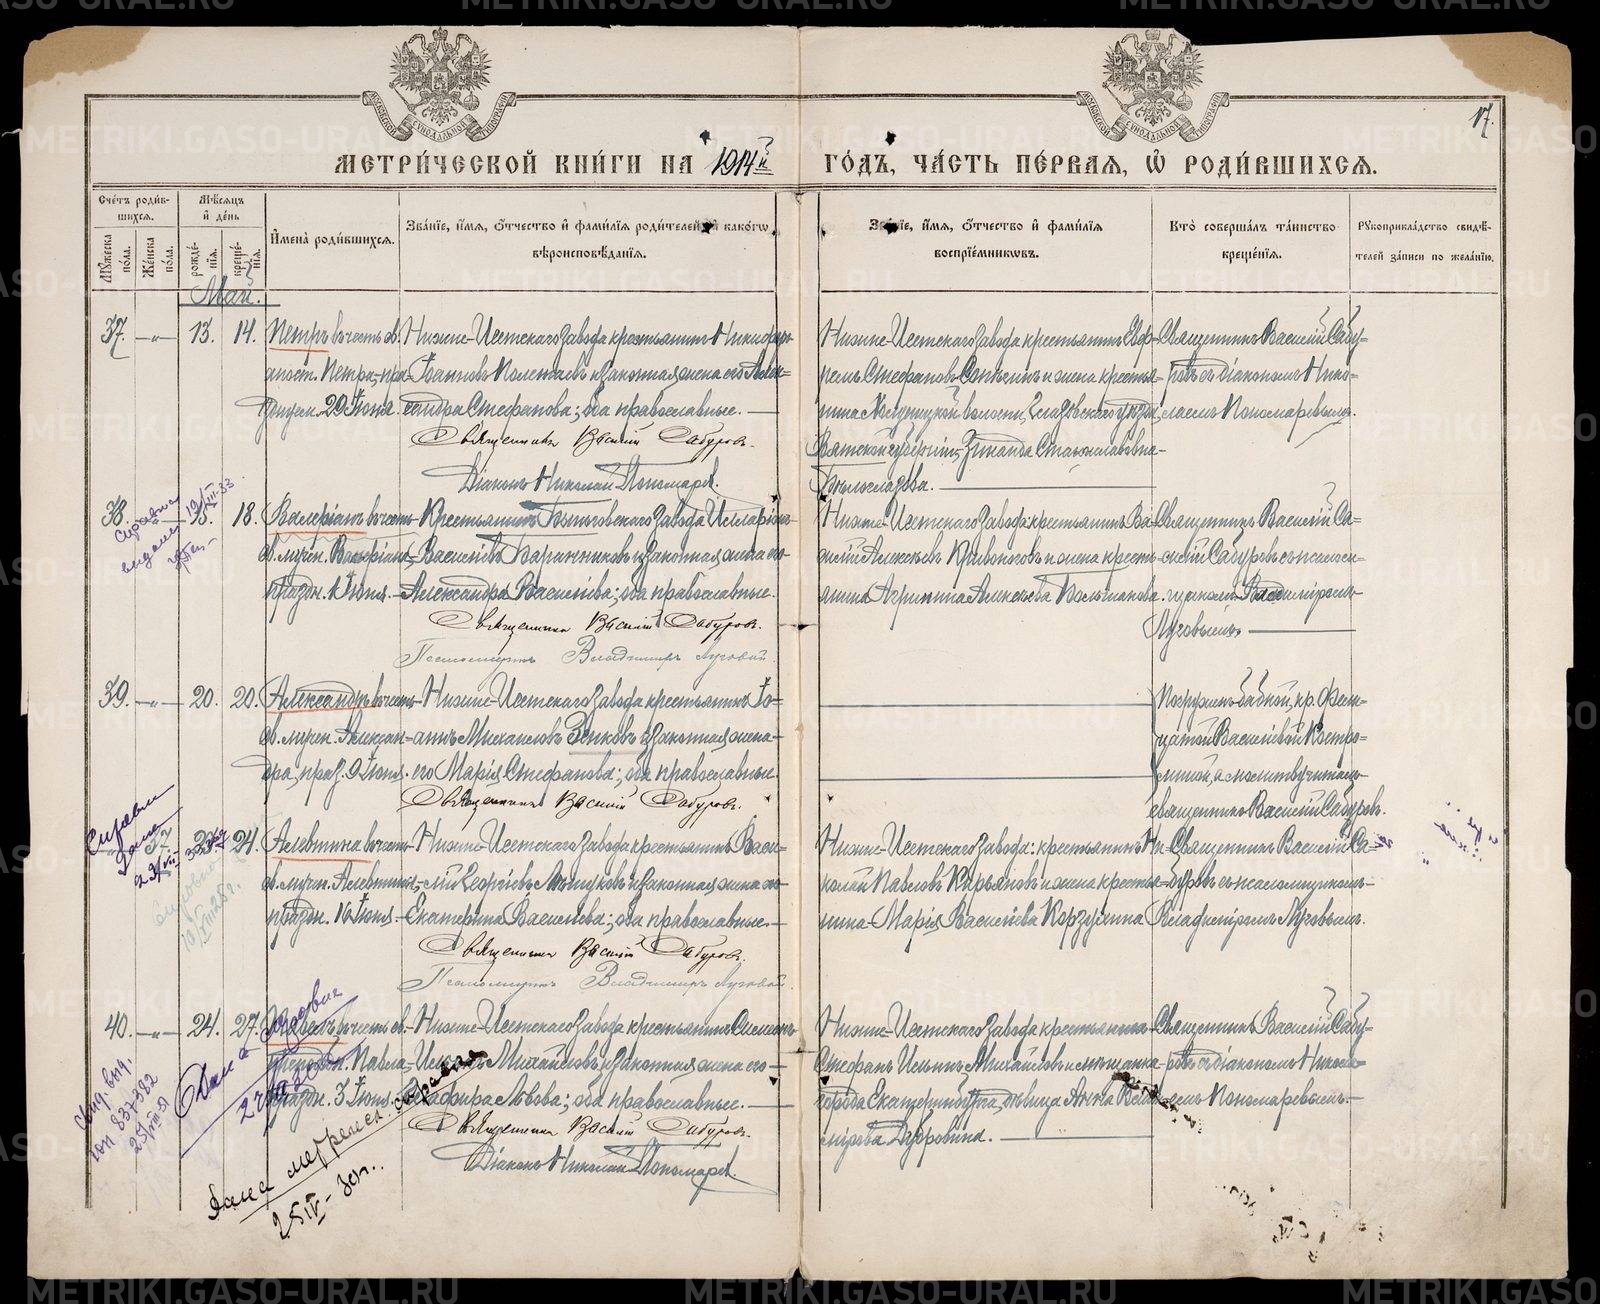 МЕТРИ́ЧЕСКОЙ КНИ́ГИ НА 1914й ГО́ДЪ, ЧА́СТЬ ПЕ́РВАЯ, Ѡ҆ РОДИ́ВШИХСЯ.
17.
Сче́тъ роди́в-
шихся.
Мѣ́сяцъ
и҆ де́нь
Мꙋ́жеска по́ла.
Же́нска по́ла.
рожде́-
нїя.
креще́-
нїя.
И҆мена̀ роди́вшихся.
Зва́нїе, и҆́мя, о҆́тчество и҆ фами́лїя роди́телей, и҆ како́гѡ
вѣроисповѣ́данїя.
Зва́нїе, и҆́мя, о҆́тчество и҆ фами́лїя
воспрїе́мникѡвъ.
Кто̀ соверша́лъ та́инство
креще́нїя.
Рꙋкоприкла́дство свидѣ́-
телей за́писи по жела́нїю.
Май.
37. — „ — 13. 14.
Петръ въ честь св.
апост. Петра, пра-
зднуем. 29 Іюня.
Нижне-Исетскаго завода крестьянинъ Никифоръ
Іоанновъ Полежаевъ и законная жена его Алек-
сандра Стефанова; оба православные.
Священникъ Василій Сабуровъ.
Діаконъ Николай Пономарев.
Нижне-Исетскаго завода крестьянинъ Еф-
ремъ Стефановъ и жена крестья-
нина волости, Глазовскаго уѣзда,
Вятской губерніи, Зинаида Станиславовна
Священникъ Василій Сабу-
ровъ съ діакономъ Нико-
лаемъ Пономаревымъ.
38. — „ — 15. 18.
Справка
выдана 19/XII-33
Валеріанъ въ честь
св. мучен. Валеріана,
праздн. 1 Іюня.
Крестьянинъ завода Илларіонъ
Василіевъ Баранниковъ и законная жена его
Александра Василіева; оба православные.
Священникъ Василій Сабуровъ.
Псаломщикъ Владимиръ Луговой
Нижне-Исетскаго завода крестьянинъ Ва-
силій Алексѣевъ Кривоноговъ и жена кресть-
янина Агрипина Алексѣева Большакова.
Священникъ Василій Са-
силій Сабуровъ съ псалом-
щикомъ Владиміромъ
Луговымъ.
39. — „ — 20. 20.
Александръ въ честь
св. мучен. Алексан-
дра, праз. 9 Іюня.
Нижне-Исетскаго завода крестьянинъ Іо-
аннъ Михаиловъ Зенковъ и законная жена
его Марія Стефанова; оба православные.
Священникъ Василій Сабуровъ.
Погруженъ бабкой, кр. Фек-
Василіевой Костро-
миной, а молитву читалъ
священникъ Василій Сабуровъ.
Справка
дана
— „ — 32. 23. 24.
Алевтина въ честь
св. мучен. Алевтины,
праздн. 16 Іюня.
Нижне-Исетскаго завода крестьянинъ Васи-
лій Георгіевъ и законная жена его
Екатерина Василіева; оба православные.
Священникъ Василій Сабуровъ.
Псаломщикъ Владимиръ Луговой.
Нижне-Исетскаго завода: крестьянинъ Ни-
колай Павловъ Кирьяновъ и жена крестья-
нина Марія Василіева Корзухина
Священникъ Василій Са-
буровъ съ псаломщикомъ
Владиміромъ Луговымъ.
40. — „ — 24. 27.
Павелъ въ честь св.
Павла
праздн. 3 Іюня.
Нижне-Исетскаго завода крестьянинъ Симеонъ
Михайловъ и законная жена его
Львова; оба православные.
Священникъ Василій Сабуровъ.
Діаконъ Николай Пономарев
Нижне-Исетскаго завода крестьянинъ
Стефанъ Ильинъ Михайловъ и мѣщанка
города Екатеринбурга, дѣвица Анна Влади-
мірова Дубровина.
Священникъ Василій Сабу-
ровъ съ діакономъ Никола-
емъ Пономаревымъ.
Свид. выд.
юп 837382
Дана справка
METRIKI.GASO-URAL.RU